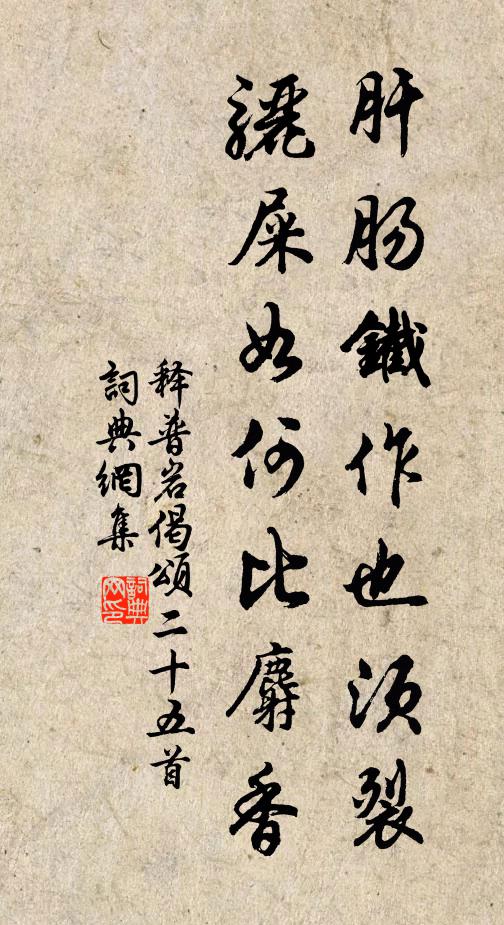 肝肠鐵作也須裂
驪屎如何比麝香
释普岩偈頌二十五首
詞典網集
詞典網印